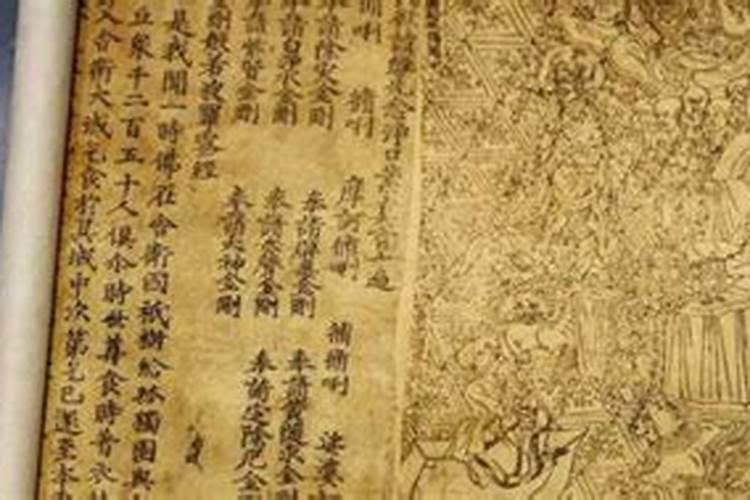 先念淨口業真言一遍
脩唎 脩唎 摩訶脩唎 脩脩唎 娑婆
請除灾金剛 奉請辟毒金剛 奉請黃隨求金剛
請白淨水金剛 奉請赤聲金剛 奉請定除厄金剛
請紫賢金剛 奉請大神金剛
金剛般若波羅蜜經
是我聞一時佛在舍衛國祇樹給孤獨園與
丘衆千二百五十人俱尒時世尊食時著衣持
入舍衛大城乞食於其城中次第乞已還至本